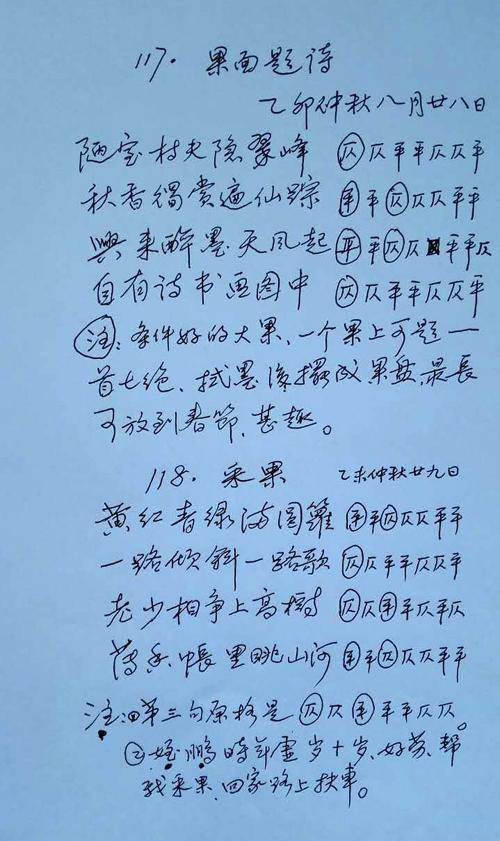 117. 果面题诗
乙卯仲秋八月廿八日
陋室村夫隐翠峰 仄仄平平仄仄平
秋香偶赏遍仙踪 平平仄仄仄平平
興来醉墨天风起 平平仄仄平平仄
自有诗书画图中 仄仄平平仄仄平
注：条件好的大果、一个果上可题一
首七绝、拭墨后摆放果盘、最長
可放到春節、甚趣。
118. 采果 乙未仲秋廿九日
黄红青绿满园籮 平平仄仄仄平平
一路倾斜一路歌 仄仄平平仄仄平
老少相争上高樹 仄仄平平仄平仄
香帳里眺山河 平平仄仄仄平平
注：①第三句原格是 仄仄平平平仄仄。
②姪鹏時年虚岁十岁、好劳、帮
我采果、回家路上扶車。